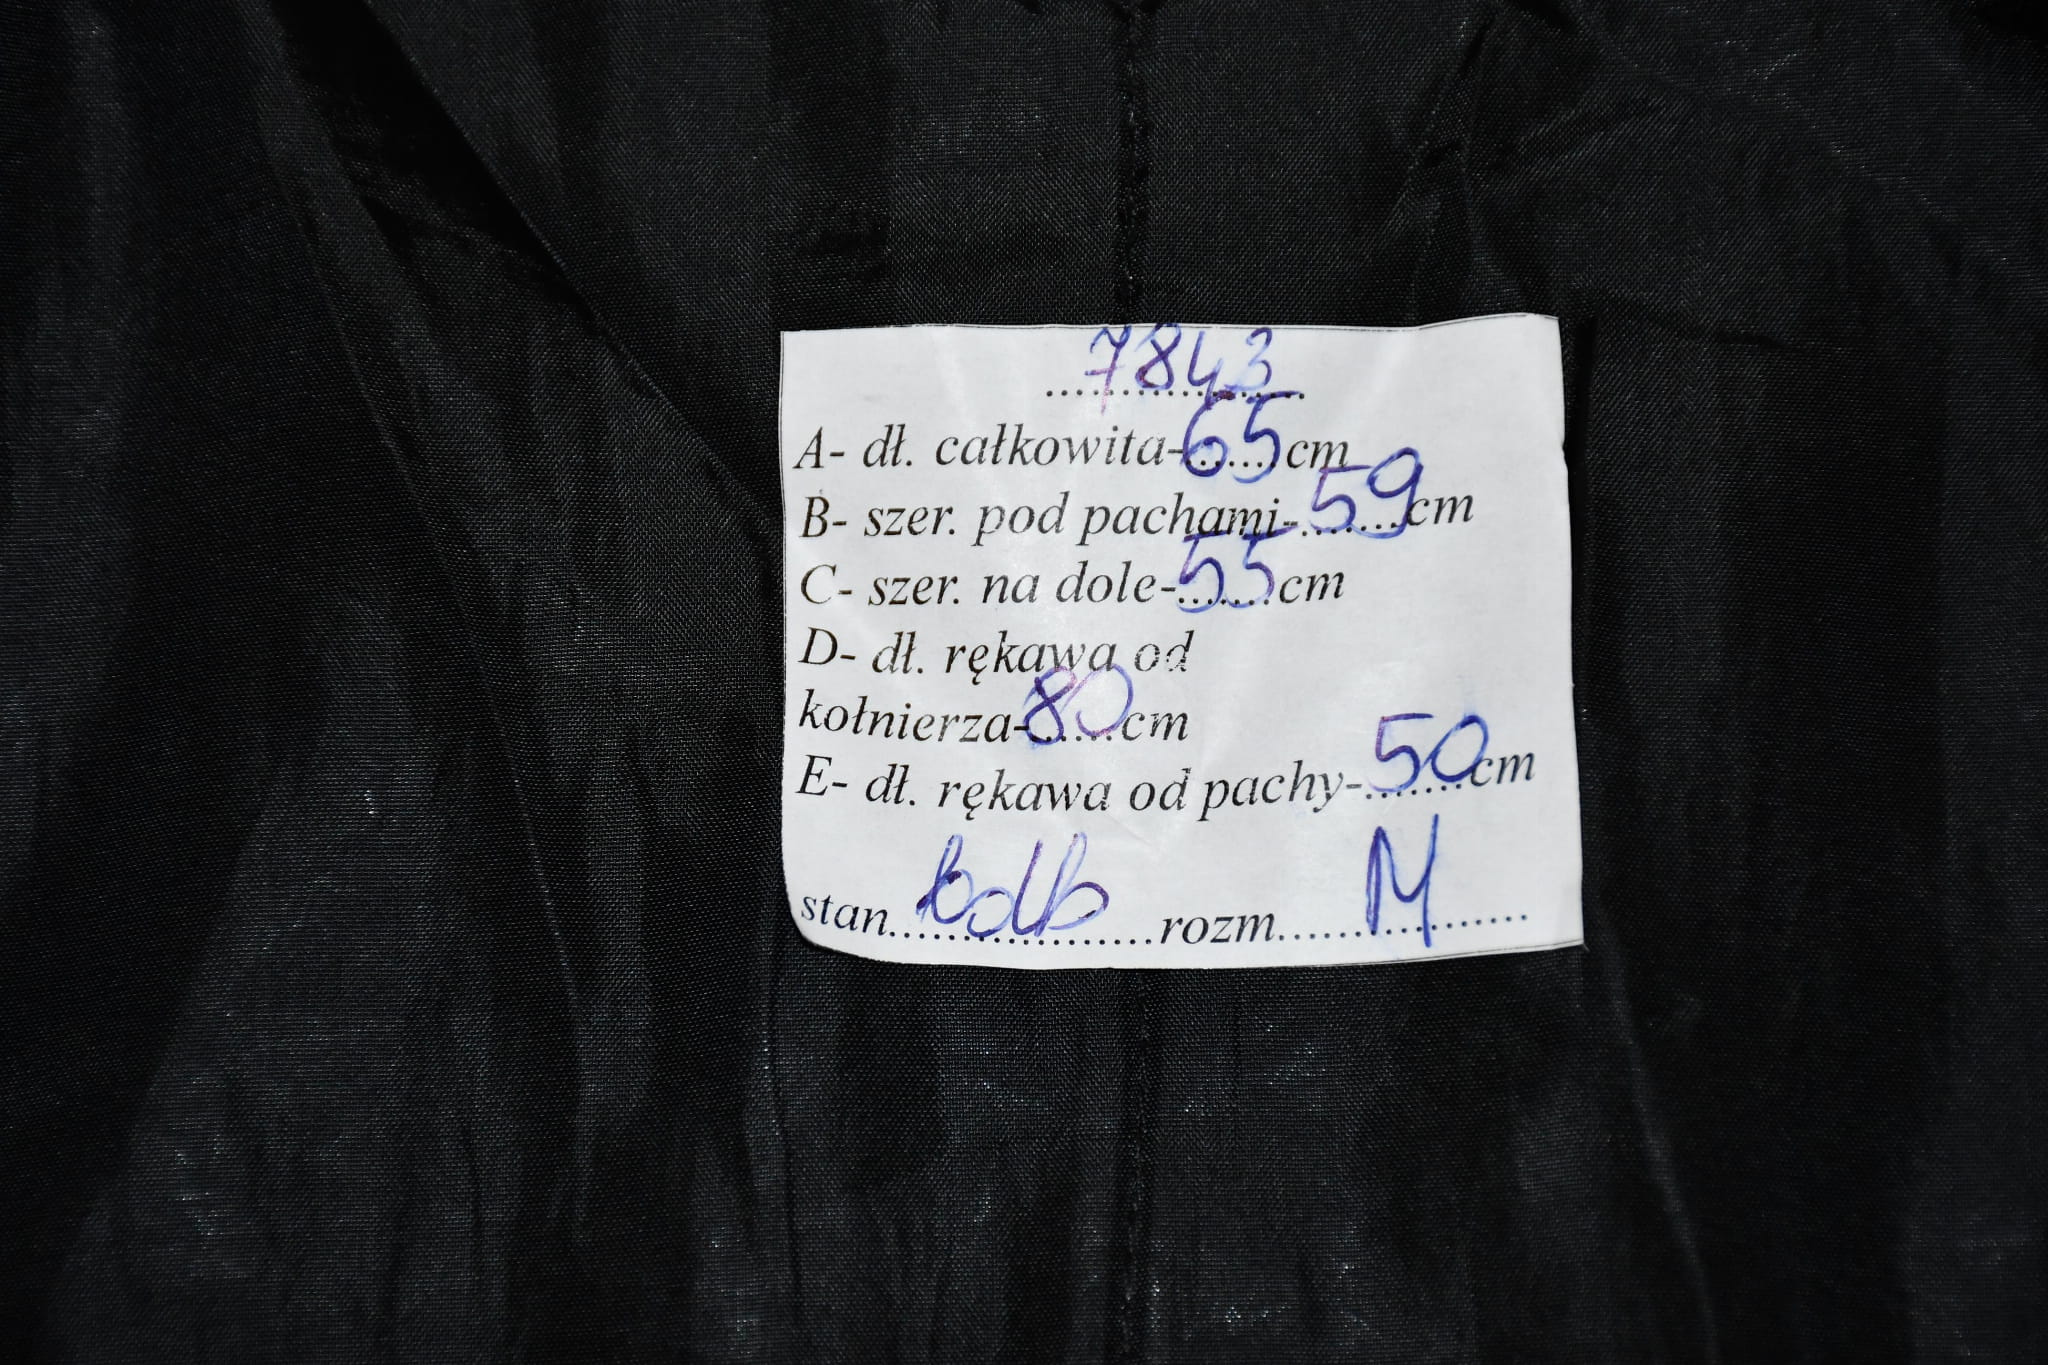 7843
A- dł. całkowita-65cm
B- szer. pod pachami-59cm
C- szer. na dole-55cm
D- dł. rękawa od
kołnierza-80cm
E- dł. rękawa od pachy-50cm
stan..................rozm.M